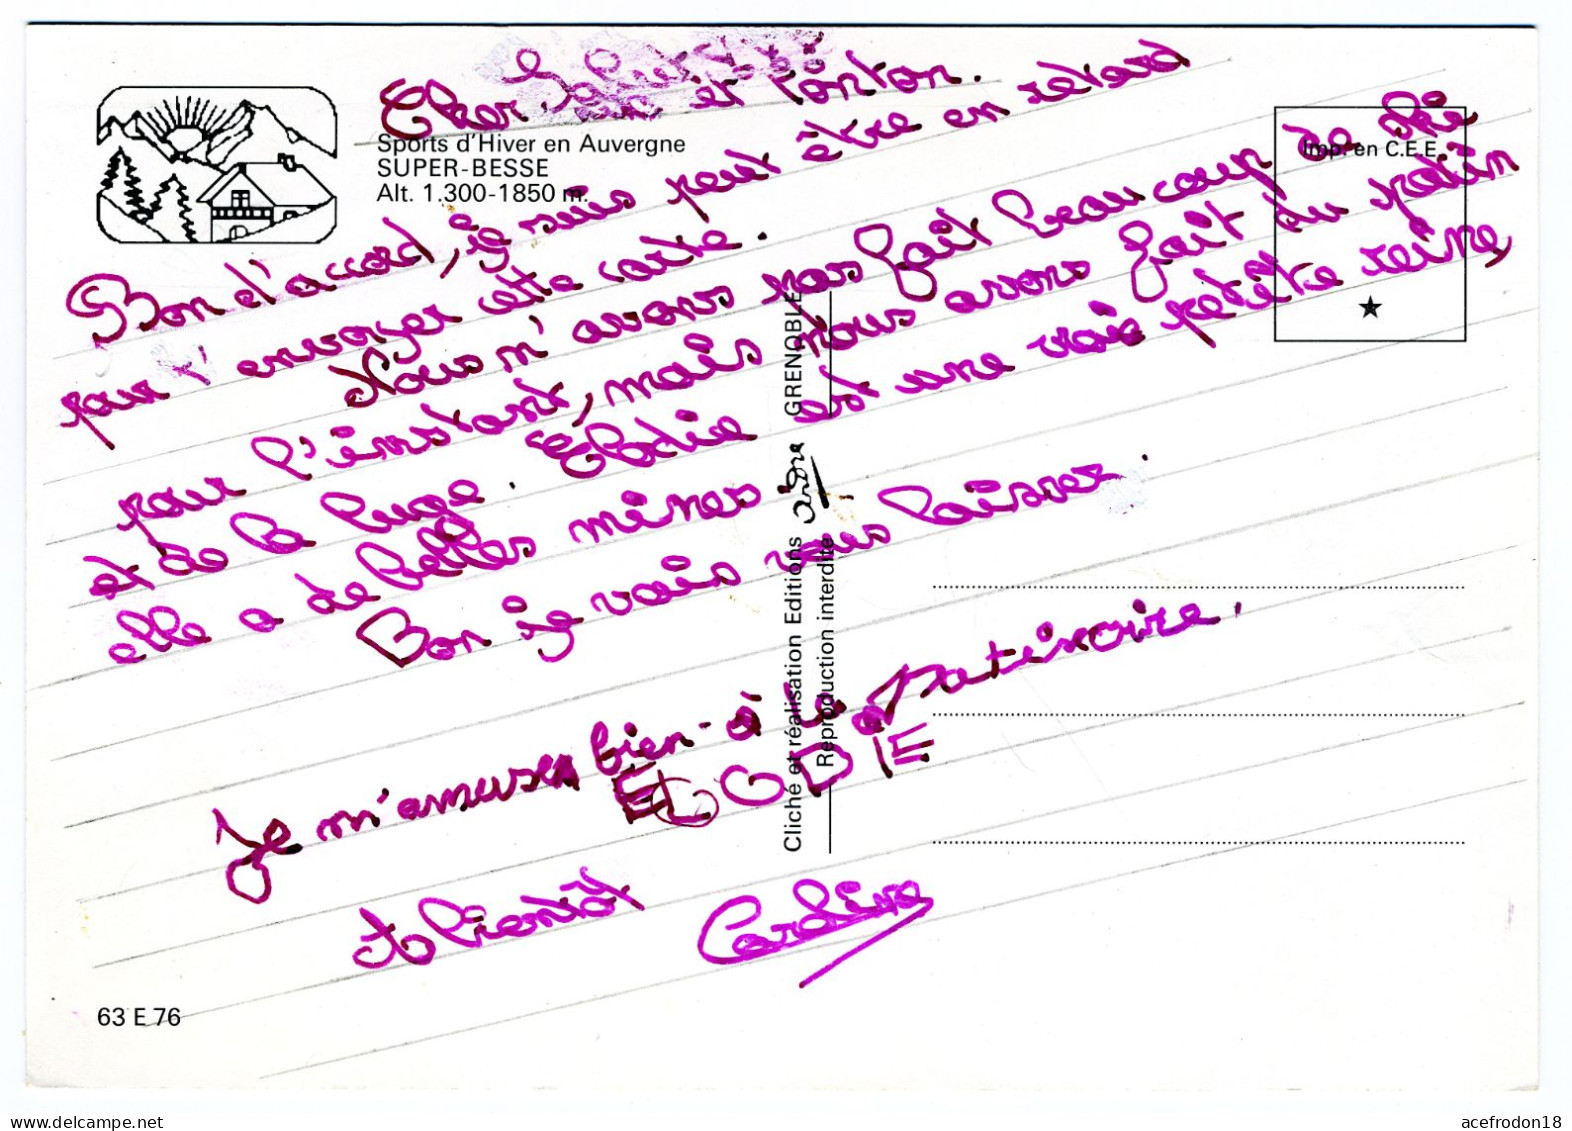 Cher et tonton.
Sports d'Hiver en Auvergne
SUPER-BESSE
Alt. 1.300-1850 m.
Imp. en C.E.E.
Bon d'accord, je suis peut être en retard
pour t'envoyer cette carte.
Nous n'avons pas fait beaucoup de ski
pour l'instant, mais nous avons fait du patin
et de la luge. Elodie est une vraie petite reine
elle a de belles mines
Bon je vais vous laisser.
Je m'amuse bien à la patinoire.
ELODIE
A bientôt
Caroline
Cliché et réalisation Editions andre GRENOBLE
Reproduction interdite
63 E 76
www.delcampe.net
acefrodon18